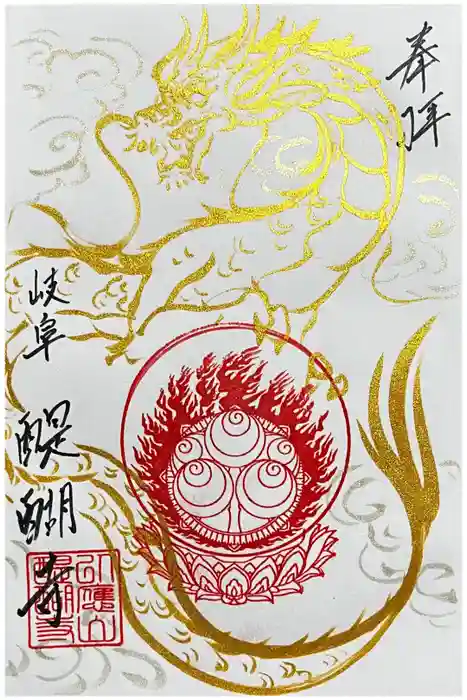 奉拝
岐阜
醍醐寺